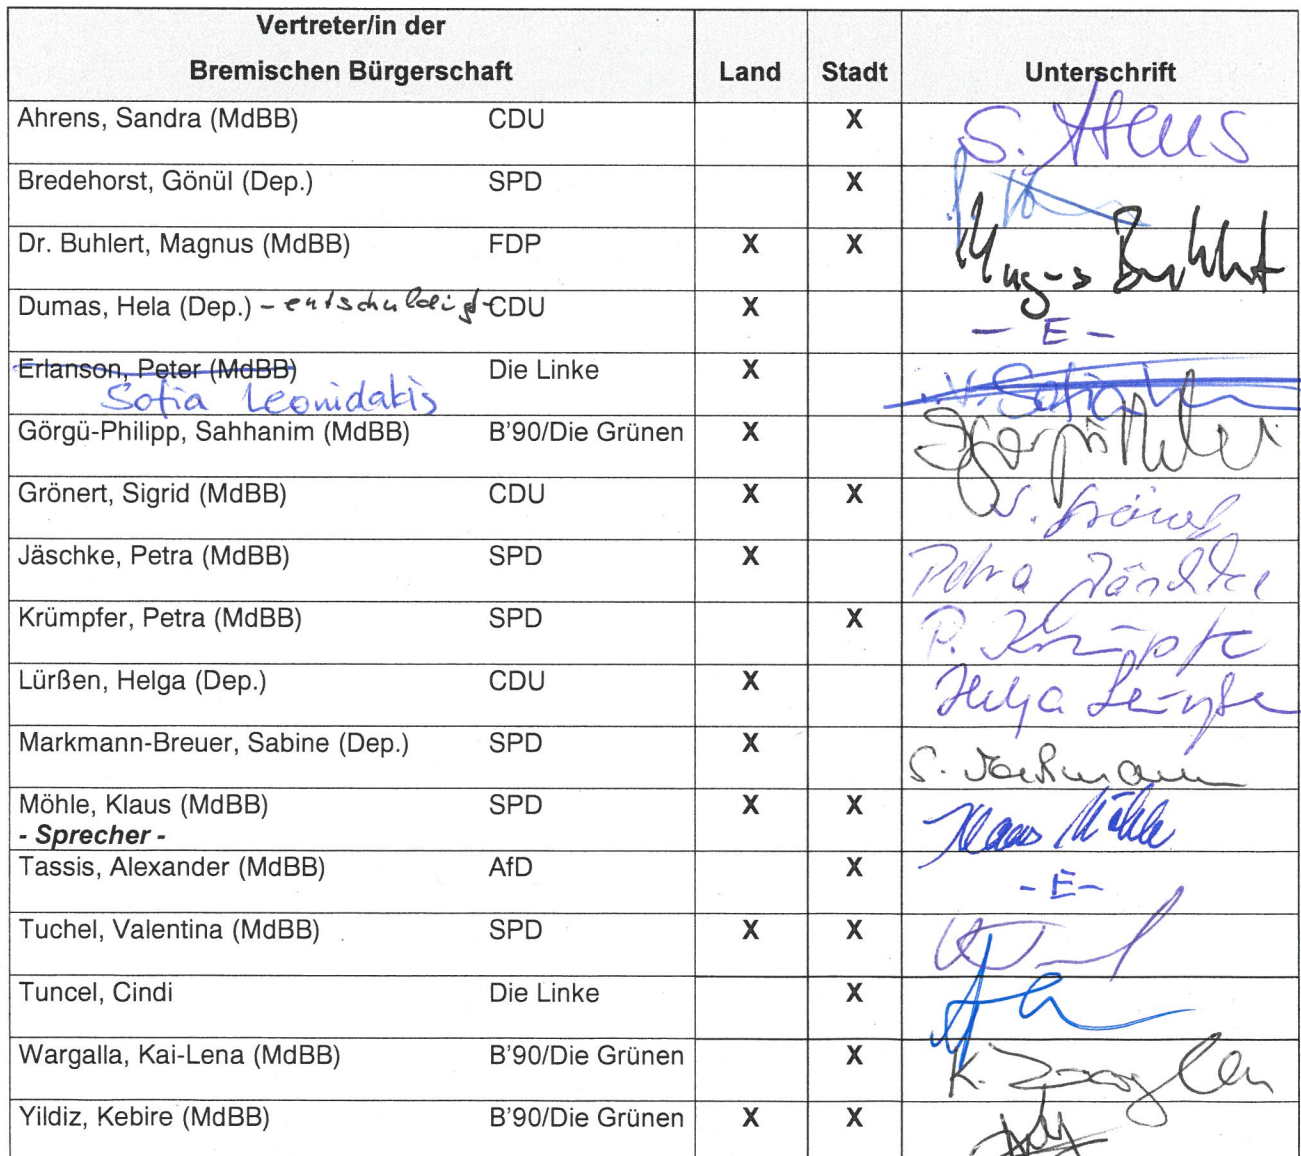 Vertreter/in der
Bremischen Bürgerschaft Land Stadt Unterschrift
Ahrens, Sandra (MdBB) CDU X S. Ahrens
Bredehorst, Gönül (Dep.) SPD X
Dr. Buhlert, Magnus (MdBB) FDP X X Magnus Buhlert
Dumas, Hela (Dep.) - entschuldigt - CDU X - E -
Erlanson, Peter (MdBB) Die Linke X i.V. Sofia
Sofia Leonidakis
Görgü-Philipp, Sahhanim (MdBB) B'90/Die Grünen X
Grönert, Sigrid (MdBB) CDU X X
Jäschke, Petra (MdBB) SPD X Petra Jäschke
Krümpfer, Petra (MdBB) SPD X P. Krümpfer
Lürßen, Helga (Dep.) CDU X Helga Lürßen
Markmann-Breuer, Sabine (Dep.) SPD X S. Markmann
Möhle, Klaus (MdBB) SPD X X Klaus Möhle
- Sprecher -
Tassis, Alexander (MdBB) AfD X - E -
Tuchel, Valentina (MdBB) SPD X X
Tuncel, Cindi Die Linke X
Wargalla, Kai-Lena (MdBB) B'90/Die Grünen X K.
Yildiz, Kebire (MdBB) B'90/Die Grünen X X